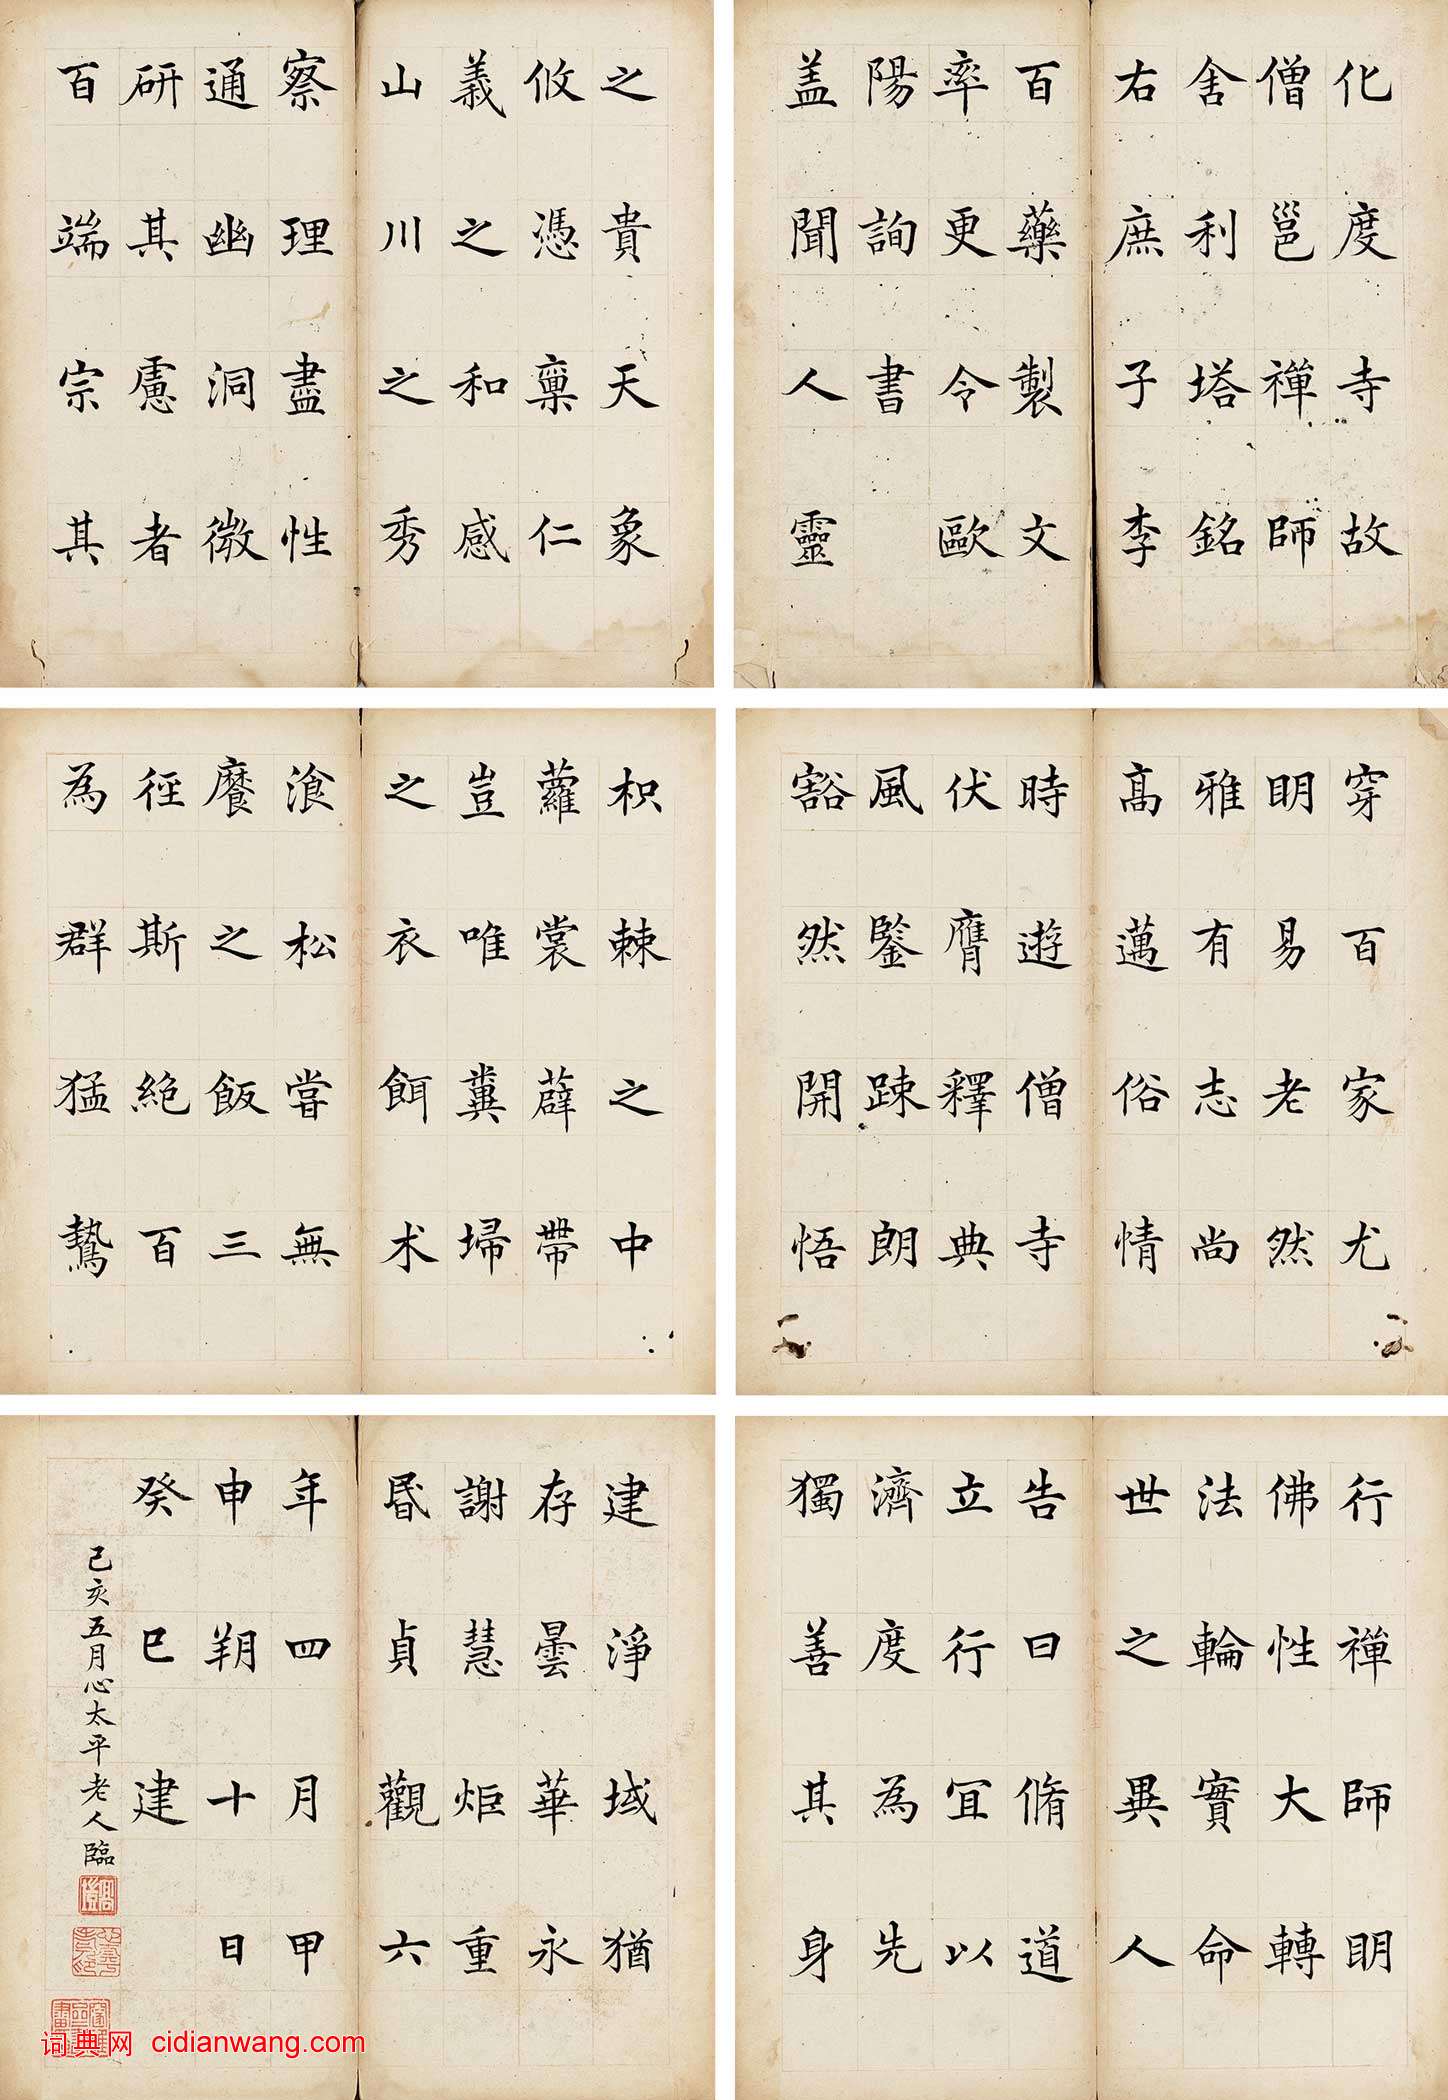 化度寺故
僧邕禪師
舍利塔銘
右庶子李
百藥製文
率更令歐
陽詢書
盖聞人靈
之貴天象
攸憑稟仁
義之和感
山川之秀
察理盡性
通幽洞微
研其慮者
百端宗其
穿百家尤
明易老然
雅有志尚
高邁俗情
時遊僧寺
伏膺釋典
風鑒疎朗
豁然開悟
枳棘之中
蘿裳薜帶
豈唯糞埽
之衣餌朮
飡松嘗無
之飯三
徑斯絕百
為群猛鷙
行禪師明
佛性大轉
法輪實命
世之異人
告曰脩道
立行宜以
濟度為先
獨善其身
建淨域猶
存曇華永
謝慧炬重
昬貞觀六
年四月甲
申朔十日
癸巳建
己亥五月心太平老人臨
词典网 cidianwang.com